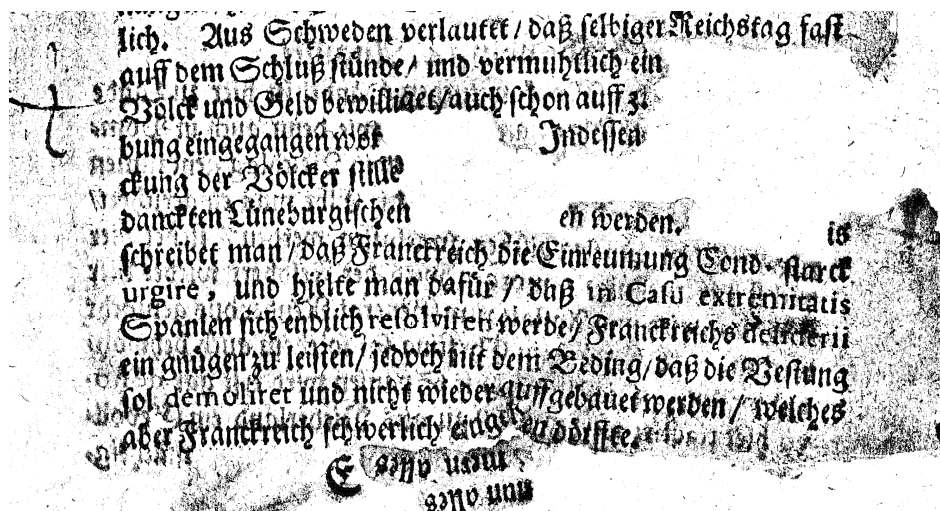 lich. Aus Schweden verlautet / daß selbiger Reichstag fast
auff dem Schluß stünde / und vermuhtlich ein
Völck und Geld bewilliget / auch schon auff
bung eingegangen Indessen
ckung der Völcker stille
danckten Lüneburgischen en werden.
is
schreibet man / daß Franckreich die Einreumung Cond- starck
urgire, und hielte man dafür / daß in Casu extremitatis
Spanien sich endlich resolviren werde / Franckreichs
ein gnügen zu leisten / jedoch mit dem Beding / daß die Vestung
sol demoliret und nicht wieder auffgebauet werden / welches
aber Franckreich schwerlich dörffte.
nun alles